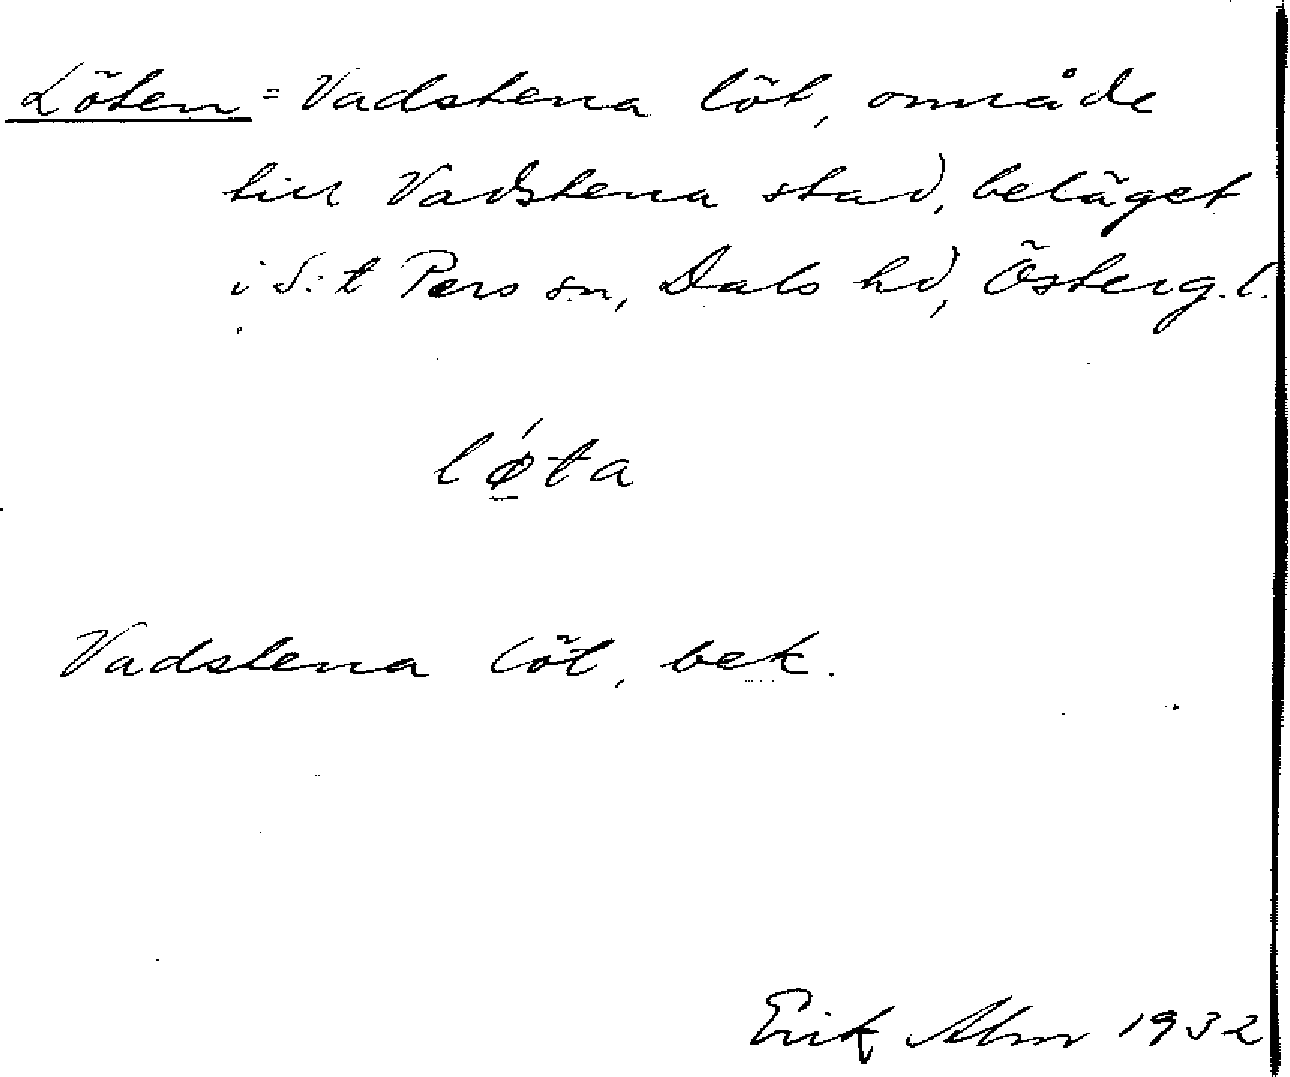 Löten = Vadstena löt, område
till Vadstena stad, beläget
i S:t Pers sn, Dals hd, Österg. l.
lǿ̱ta
Vadstena löt, bek.
Erik Abrn 1932